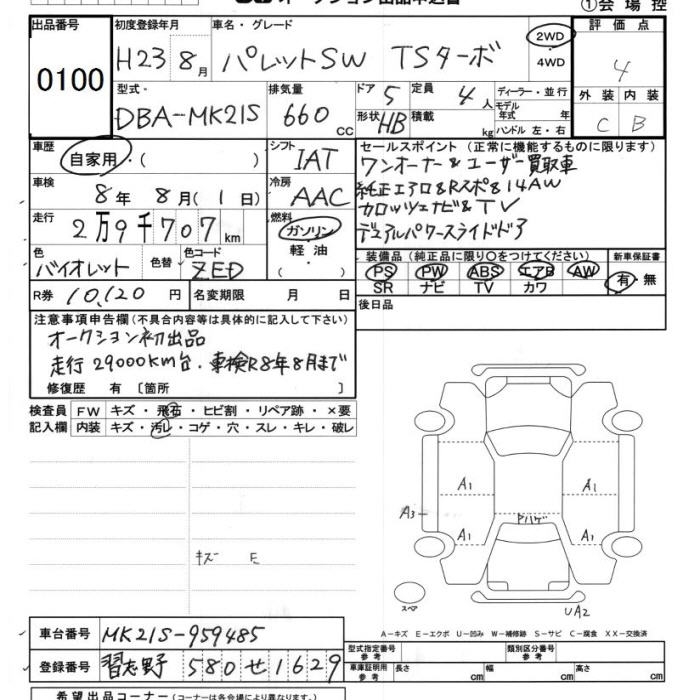 ①会場控
出品番号 初度登録年月 車名・グレード 評価点
0100 H23 8月 パレットSW TSターボ 2WD ・ 4WD 4
型式 排気量 ドア 5 定員 4人 ディーラー・並行 外装 内装
DBA-MK21S 660cc 形状 HB 積載 kg モデル年式 年 ハンドル 左・右 C B
車歴 自家用・( ) シフト IAT
セールスポイント(正常に機能するものに限ります)
ワンオーナー&ユーザー買取車
純正エアロ&Rスポ&14AW
カロッツェナビ&TV
デュアルパワースライドドア
車検 8年 8月(1日) 冷房 AAC
走行 2万9千707km 燃料 ガソリン・軽油・( )
色 バイオレット 色替 色コード ZED
装備品(純正品に限り○をつけてください) 新車保証書
PS PW ABS エアB AW 有・無
SR ナビ TV カワ
R券 10,120円 名変期限 月 日
後日品
注意事項申告欄(不具合内容等は具体的に記入して下さい)
オークション初出品
走行29000KM台・車検R8年8月まで
修復歴 有 〔箇所 〕
検査員 FW キズ・飛石・ヒビ割・リペア跡・×要
記入欄 内装 キズ・汚レ・コゲ・穴・スレ・キレ・破レ
キズ E
A1 A1
A3
A1 A1
スペア
UA2
A-キズ E-エクボ U-凹み W-補修跡 S-サビ C-腐食 XX-交換済
車台番号 MK21S-959485
登録番号 習志野 580 せ 1629
型式指定番号 参考 類別区分番号 参考
車庫証明用 参考 長さ cm 幅 cm 高さ cm
希望出品コーナー(コーナーは各会場により異なります。)